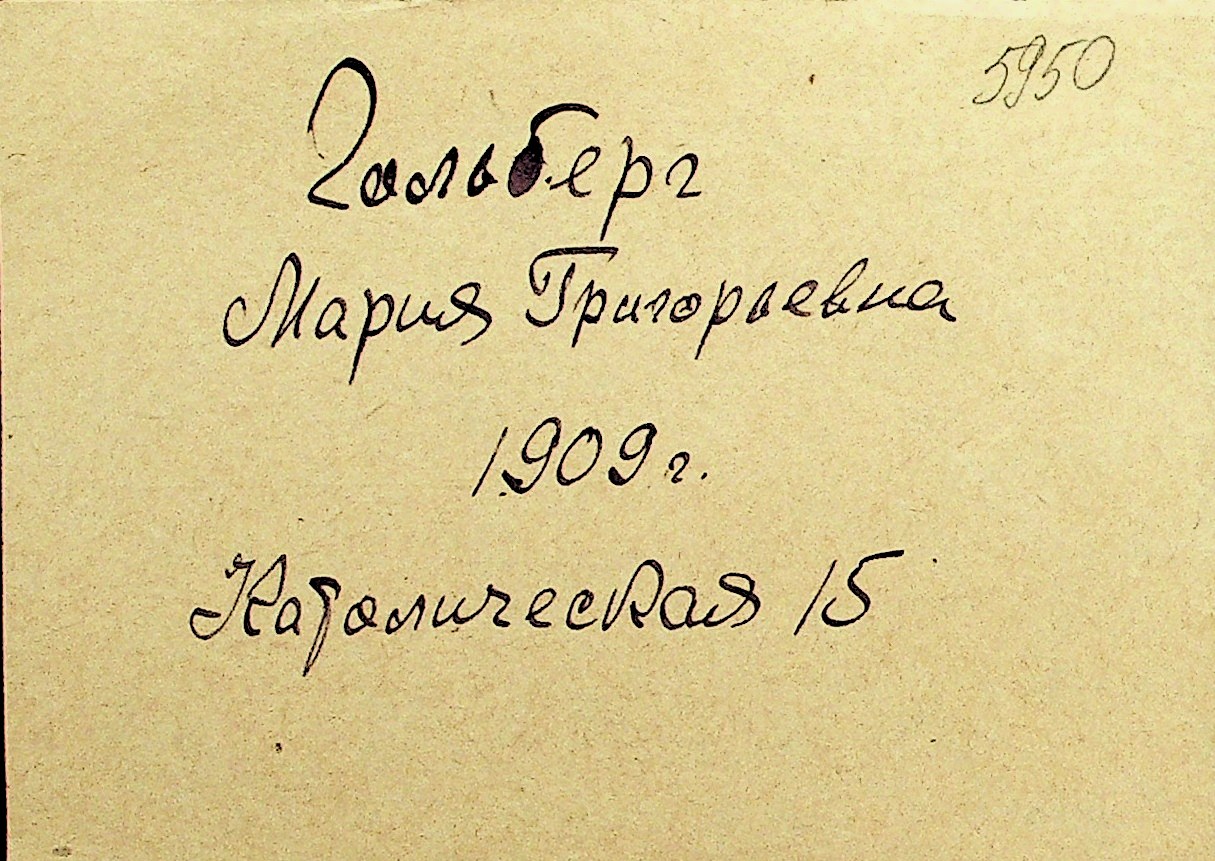 5950
Гальберг
Мария Григорьевна
1909 г.
Католическая 15